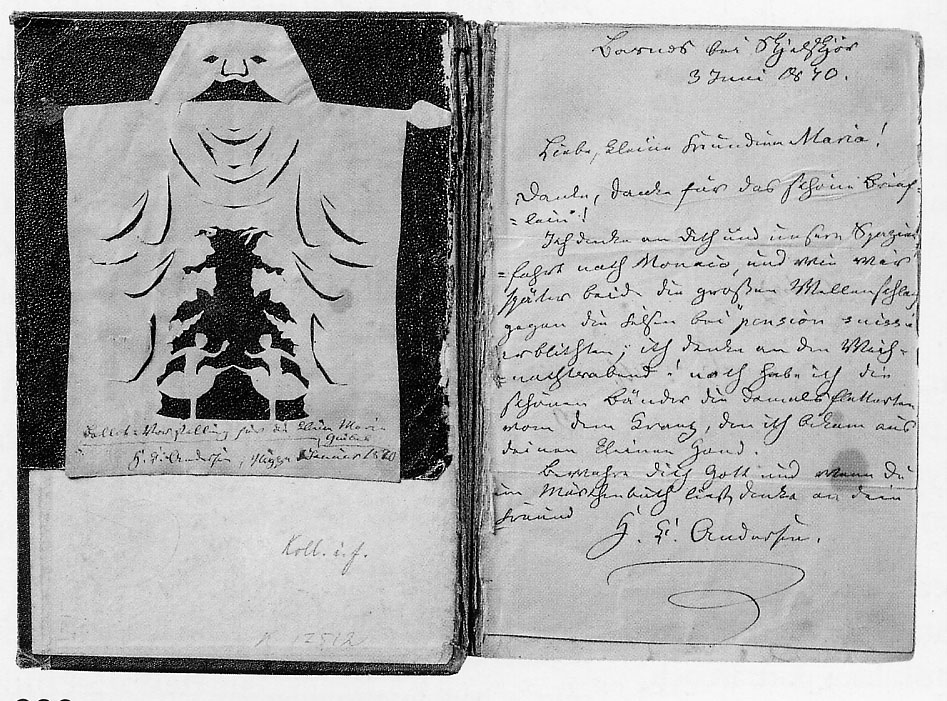 Ballet-Vorstellung für die kleine Maria
H. C. Andersen, Januar 1870
Koll. i. f.
Basnæs bei Skjelskjör
3 Juni 1870.
Liebe, kleine Freundinn Maria!
Danke, danke für das schöne Brief-
=lein!
Ich denke an Dich und unsere Spazier
=fahrt nach Monaco, und wie wir
später beide die großen Wellenschlag
gegen die Felsen bei pension suisse
erblickten; ich denke an den Weih-
=nachtsabend! noch habe ich die
schönen Bänder die damals flatterten
vom dem Kranz, den ich bekam aus
deinen kleinen Hand.
Bewahre dich Gott und wenn du
im Märchenbuch liest, denke an dein
Freund
H. C. Andersen.